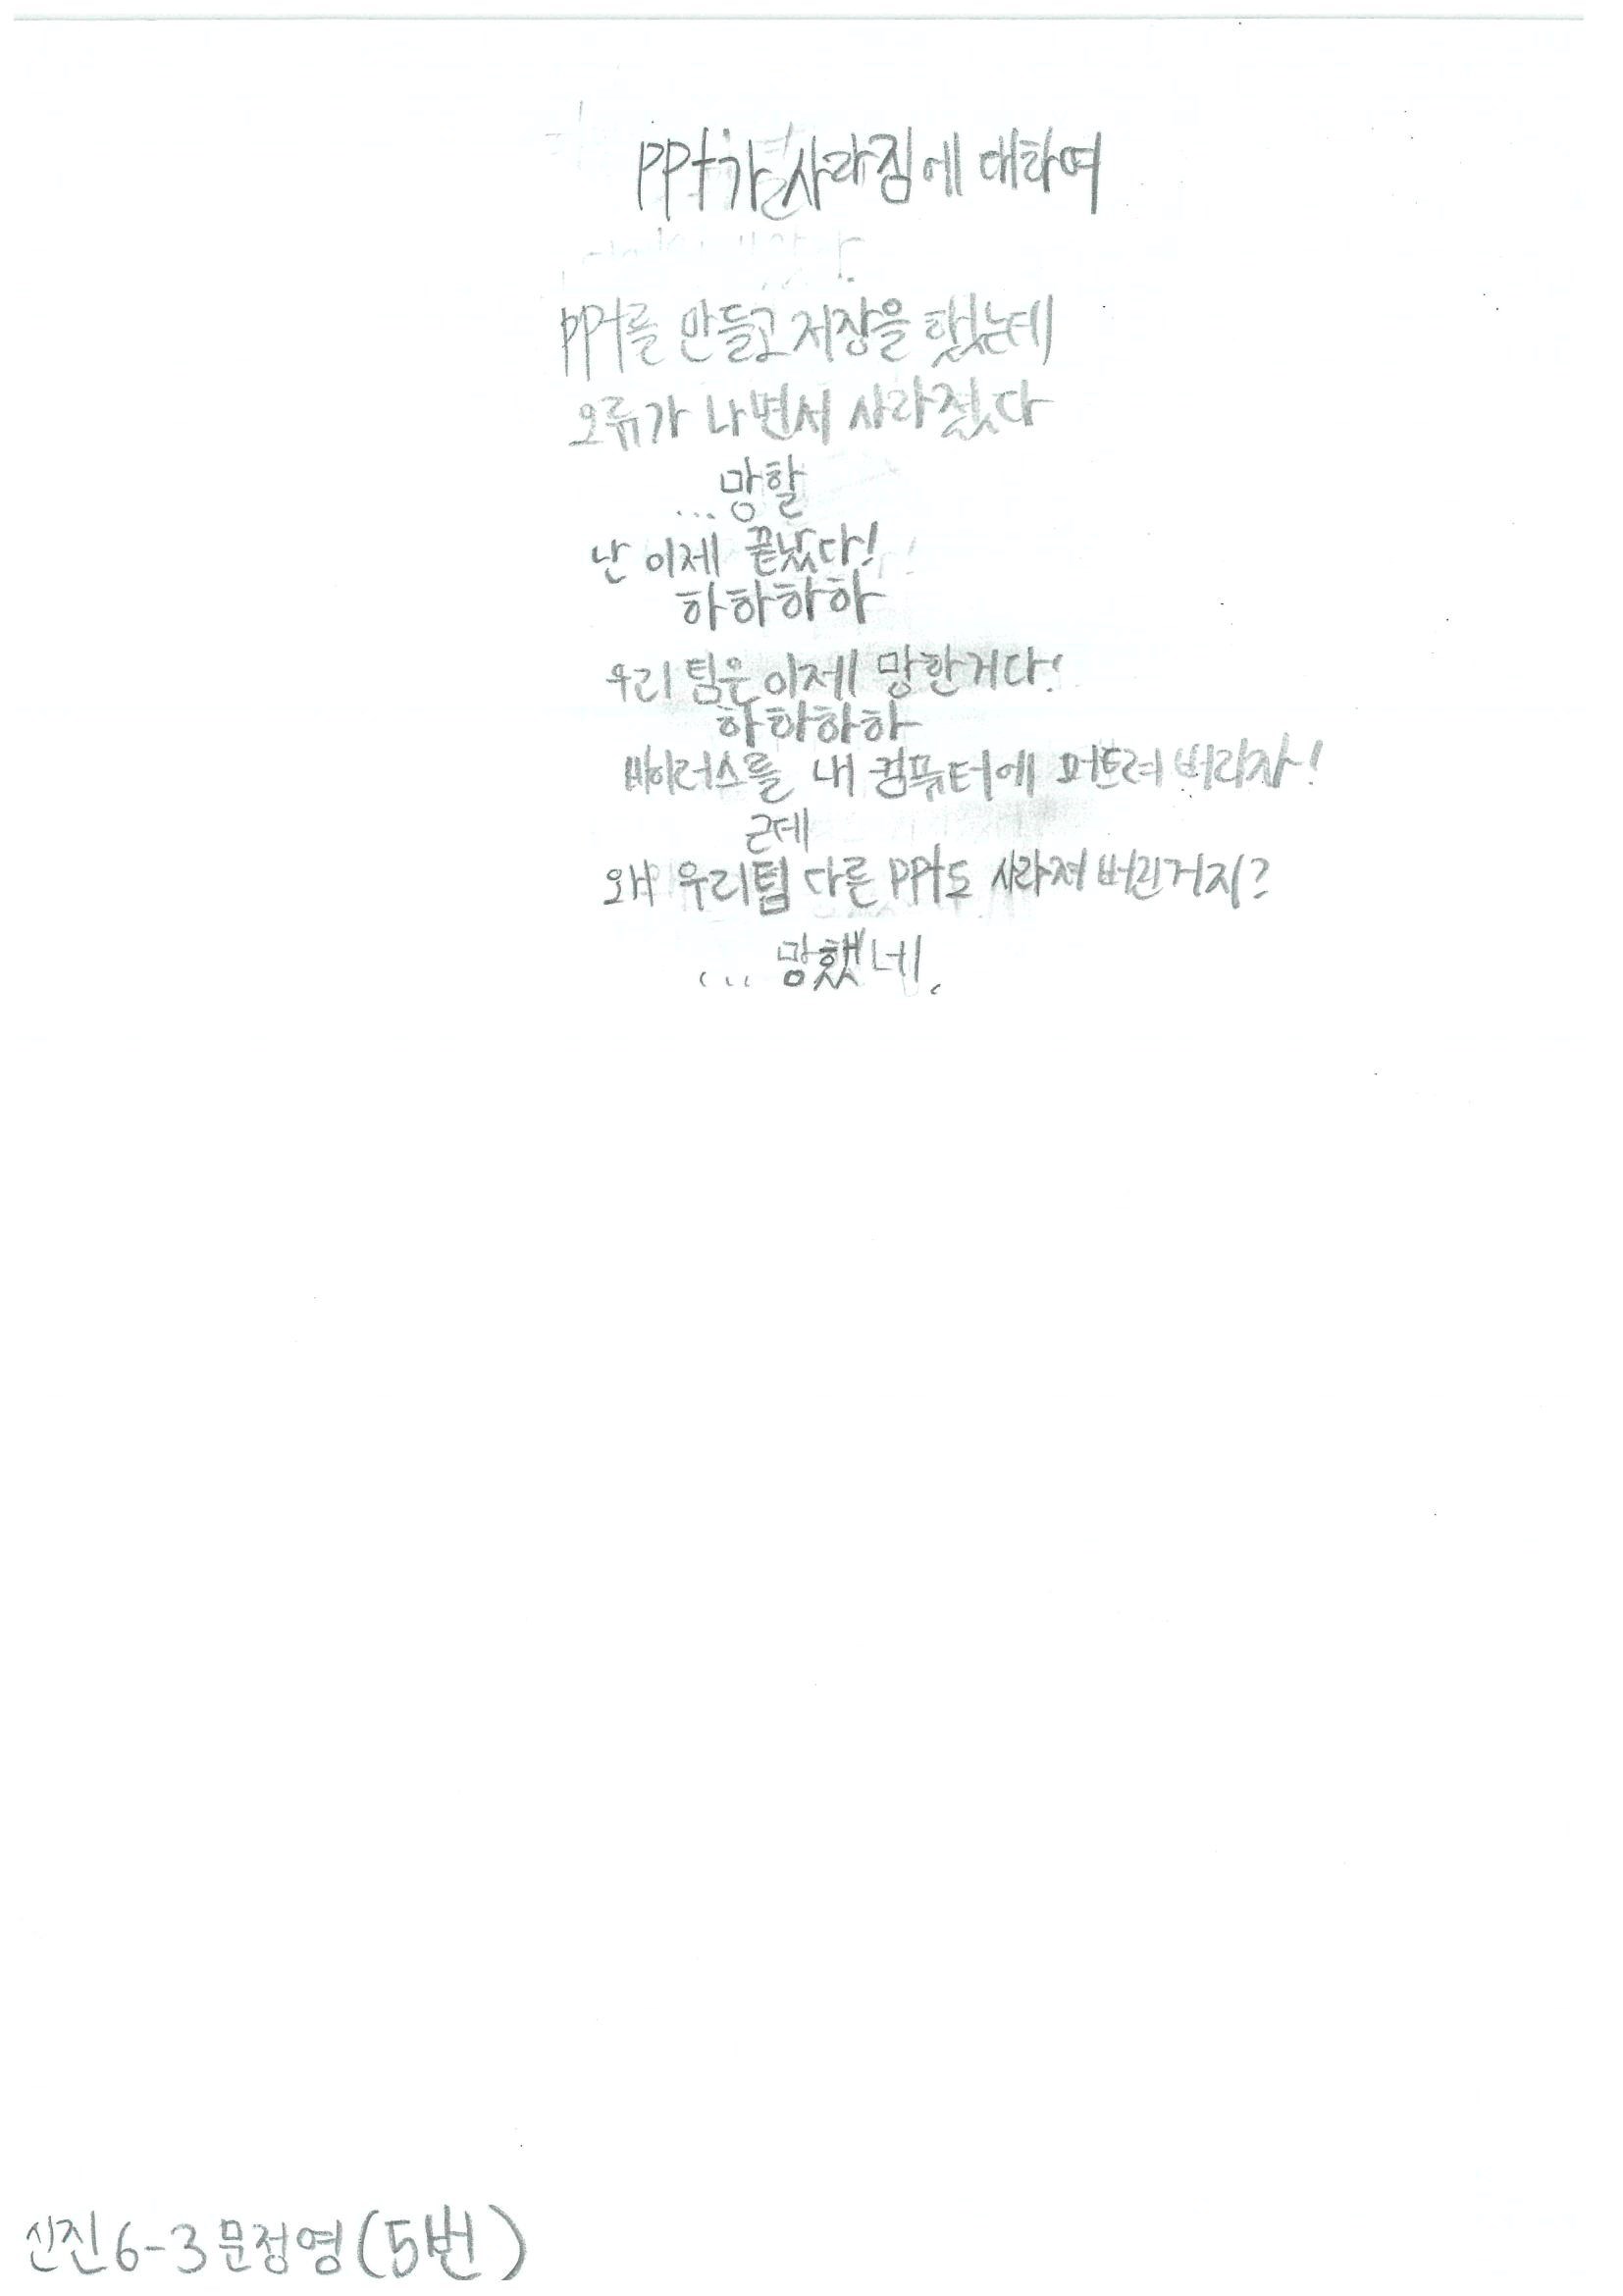 ppt가 사라짐에 대하여
ppt를 만들고 저장을 했는데
오류가 나면서 사라졌다
...망할
난 이제 끝났다!
하하하하
우리 팀은 이제 망한거다!
하하하하
바이러스를 내 컴퓨터에 퍼트려 버리자!
근데
왜 우리팀 다른 ppt도 사라져 버린거지?
... 망했네.
신진 6-3 문정영 (5번)